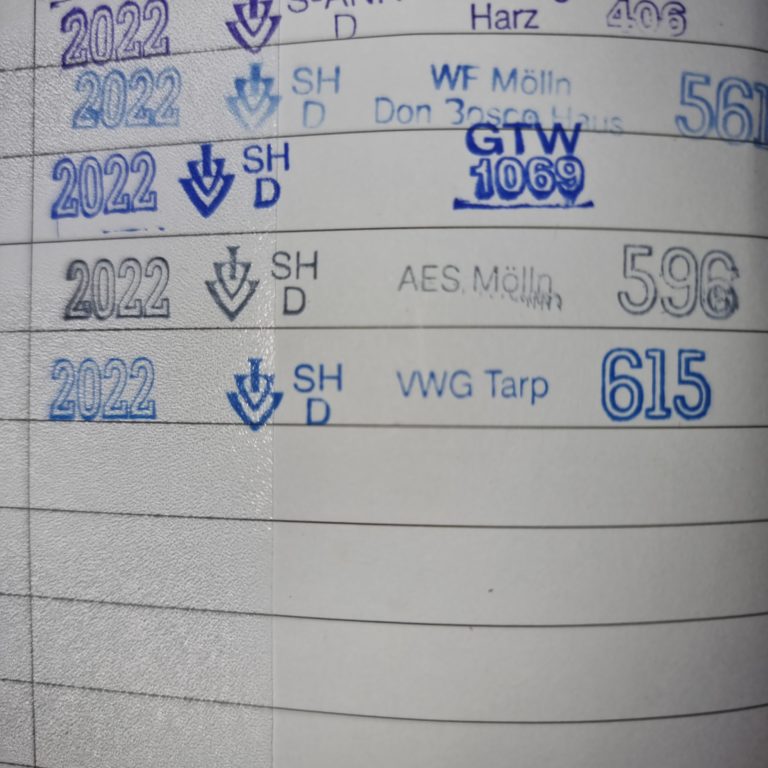 2022 D Harz 406
2022 SH D WF Mölln Don Bosco Haus 561
2022 SH D GTW 1069
2022 SH D AES Mölln 596
2022 SH D VWG Tarp 615